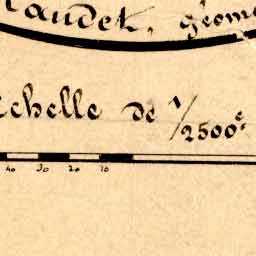 audet, géom
chelle de 1/2500e
40 30 20 10